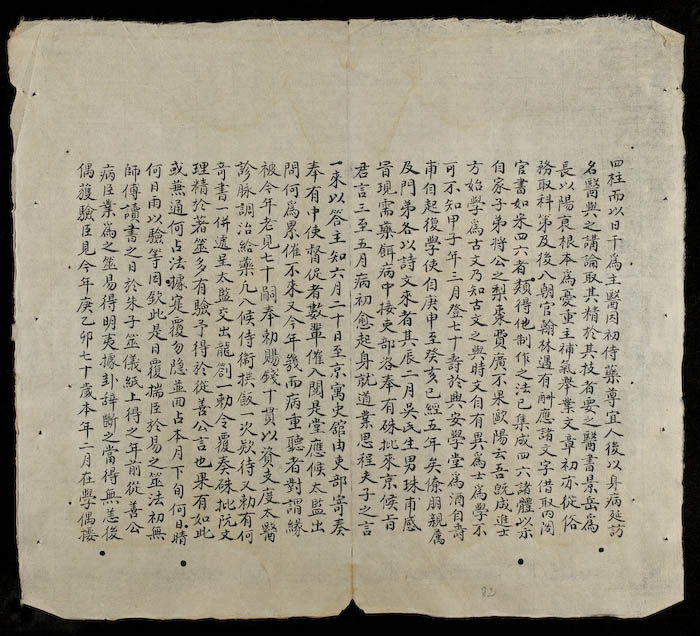 四柱而以日干為主醫因初侍藥專宜人後以身病延訪
名醫與之講論取其精於其技者要之醫書景岳為
長以陽衰根本為憂重主補氣舉業文章初亦從俗
務取科第及後八朝官翰林遇有酬應諸文字借取內閣
官書如宋四六者類得他制作之法已集成四六諸體以示
自家子弟將公之梨棗費廣不果歐陽云吾既成進士
方始學為古文乃知古文之與時文自有異為士為學不
可不知甲子年三月登七十壽於興安學堂為酒自壽
甫自起復學使自庚申至癸亥已經五年矣僚朋親屬
及門弟各以詩文來者其辰二月吳氏生男珠甫感
冒現需藥餌病中接吏部洛奉有硃批來京候旨
君言三至五月病初愈起身就道業思程夫子之言
一來以答主知六月二十日至京寓吏館由吏部寄奏
奉有中使督促者數輩催入閣是堂應候太監出
問何為累催不來又今年幾而病重聽者對謂緣
被今年老見七十嗣奉勑賜錢十貫以資支度太醫
診脉調治給藥凡八候侍衛拱飯一次欵待又勑有何
奇書一併遞呈太監交出龍劄一勑令覆奏硃批阮文
理精於著筮多有驗予得於從善公言也果有如此
或無通何占法據寔覆勿隐並囬占本月下旬何日晴
何日雨以驗等因欽此是日覆揣臣於易之筮法初無
師傳讀書之日於朱子筮儀紙上得之年前從善公
病臣業為之筮易得明夷據卦辞斷之當得無恙後
偶獲驗臣見今年庚乙卯七十歲本年二月在學偶擡
82